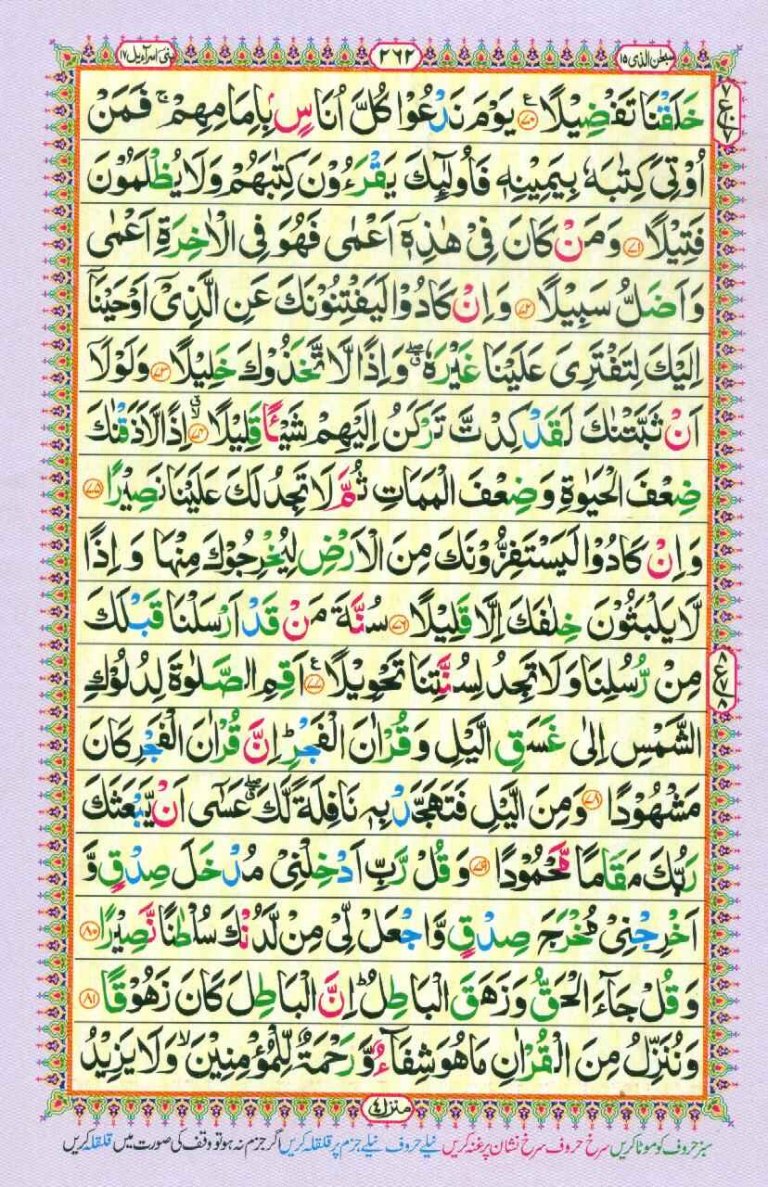 سبحٰن الذی ۱۵ ۲۶۲ بنی اسرآءیل ۱۷
خَلَقْنَا تَفْضِیْلًا ﴿۷۰﴾ یَوْمَ نَدْعُوْا كُلَّ اُنَاسٍۭ بِاِمَامِهِمْ ۚ فَمَنْ
اُوْتِیَ كِتٰبَهٗ بِیَمِیْنِهٖ فَاُولٰٓىِٕكَ یَقْرَءُوْنَ كِتٰبَهُمْ وَلَا یُظْلَمُوْنَ
فَتِیْلًا ﴿۷۱﴾ وَمَنْ كَانَ فِیْ هٰذِهٖۤ اَعْمٰی فَهُوَ فِی الْاٰخِرَةِ اَعْمٰی
وَاَضَلُّ سَبِیْلًا ﴿۷۲﴾ وَاِنْ كَادُوْا لَیَفْتِنُوْنَكَ عَنِ الَّذِیْۤ اَوْحَیْنَاۤ
اِلَیْكَ لِتَفْتَرِیَ عَلَیْنَا غَیْرَهٗ ۖۗ وَاِذًا لَّاتَّخَذُوْكَ خَلِیْلًا ﴿۷۳﴾ وَلَوْلَاۤ
اَنْ ثَبَّتْنٰكَ لَقَدْ كِدْتَّ تَرْكَنُ اِلَیْهِمْ شَیْـًٔا قَلِیْلًا ﴿۷۴﴾ۗۙ اِذًا لَّاَذَقْنٰكَ
ضِعْفَ الْحَیٰوةِ وَضِعْفَ الْمَمَاتِ ثُمَّ لَا تَجِدُ لَكَ عَلَیْنَا نَصِیْرًا ﴿۷۵﴾
وَاِنْ كَادُوْا لَیَسْتَفِزُّوْنَكَ مِنَ الْاَرْضِ لِیُخْرِجُوْكَ مِنْهَا وَاِذًا
لَّا یَلْبَثُوْنَ خِلٰفَكَ اِلَّا قَلِیْلًا ﴿۷۶﴾ سُنَّةَ مَنْ قَدْ اَرْسَلْنَا قَبْلَكَ
مِنْ رُّسُلِنَا وَلَا تَجِدُ لِسُنَّتِنَا تَحْوِیْلًا ﴿۷۷﴾ اَقِمِ الصَّلٰوةَ لِدُلُوْكِ
الشَّمْسِ اِلٰی غَسَقِ الَّیْلِ وَقُرْاٰنَ الْفَجْرِ ؕ اِنَّ قُرْاٰنَ الْفَجْرِ كَانَ
مَشْهُوْدًا ﴿۷۸﴾ وَمِنَ الَّیْلِ فَتَهَجَّدْ بِهٖ نَافِلَةً لَّكَ ۖۗ عَسٰۤی اَنْ یَّبْعَثَكَ
رَبُّكَ مَقَامًا مَّحْمُوْدًا ﴿۷۹﴾ وَقُلْ رَّبِّ اَدْخِلْنِیْ مُدْخَلَ صِدْقٍ وَّ
اَخْرِجْنِیْ مُخْرَجَ صِدْقٍ وَّاجْعَلْ لِّیْ مِنْ لَّدُنْكَ سُلْطٰنًا نَّصِیْرًا ﴿۸۰﴾
وَقُلْ جَآءَ الْحَقُّ وَزَهَقَ الْبَاطِلُ ؕ اِنَّ الْبَاطِلَ كَانَ زَهُوْقًا ﴿۸۱﴾
وَنُنَزِّلُ مِنَ الْقُرْاٰنِ مَا هُوَ شِفَآءٌ وَّرَحْمَةٌ لِّلْمُؤْمِنِیْنَ ۙ وَلَا یَزِیْدُ
منزل ۴
سبز حروف کو موٹا کریں سرخ حروف سرخ نشان پر غنہ کریں نیلے حروف نیلے جزم پر قلقلہ کریں اگر جزم نہ ہو تو وقف کی صورت میں قلقلہ کریں